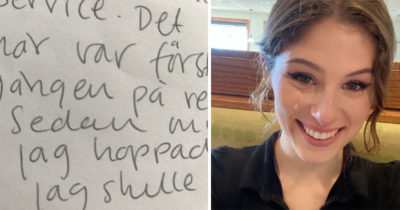 service. Det
här var först
gången på re
Sedan m
Jag hoppad
Jag skulle